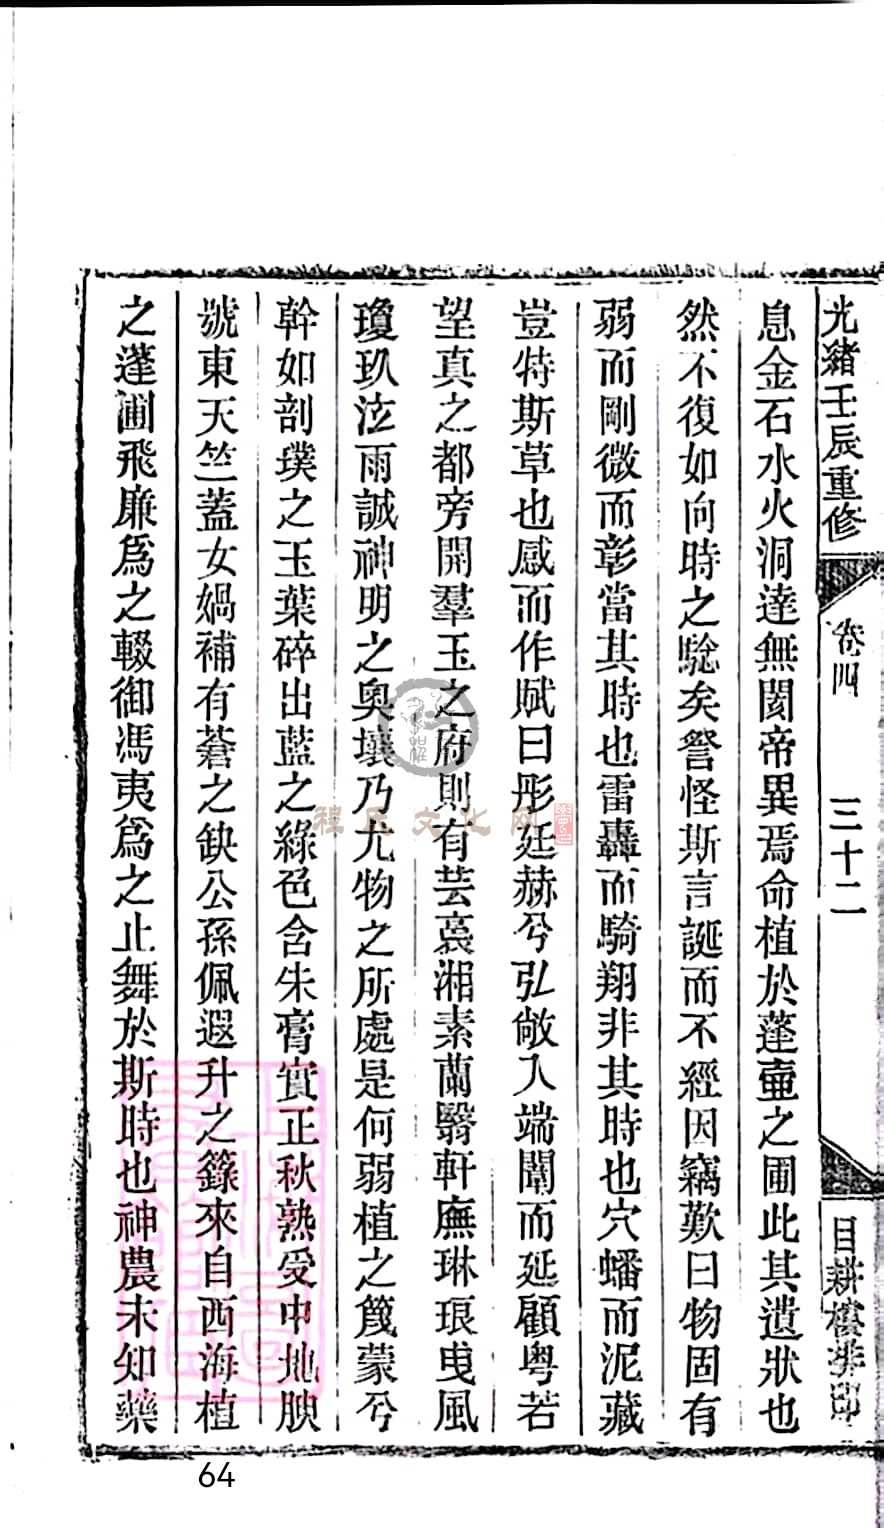 光緒壬辰重修
卷四
三十二
目耕樓洪印
息金石水火洞達無閡帝異焉命植於蓬壷之圃此其遺狀也
然不復如向時之驗矣詧怪斯言誕而不經因竊歎曰物固有
弱而剛微而彰當其時也雷轟而騎翔非其時也穴蟠而泥藏
豈特斯草也感而作賦曰彤廷赫兮弘敞入端闈而延顧粤若
望真之都旁開羣玉之府則有芸裛湘素蘭翳軒廡琳琅曳風
瓊玖泣雨誠神明之奥壤乃尤物之所處是何弱植之篾蒙兮
幹如剖璞之玉葉碎出藍之綠色含朱膏實正秋熟受中地腴
號東天竺蓋女媧補有蒼之缺公孫佩遐升之籙來自西海植
之蓬圃飛廉爲之輟御馮夷爲之止舞於斯時也神農未知藥
程氏文化网
64